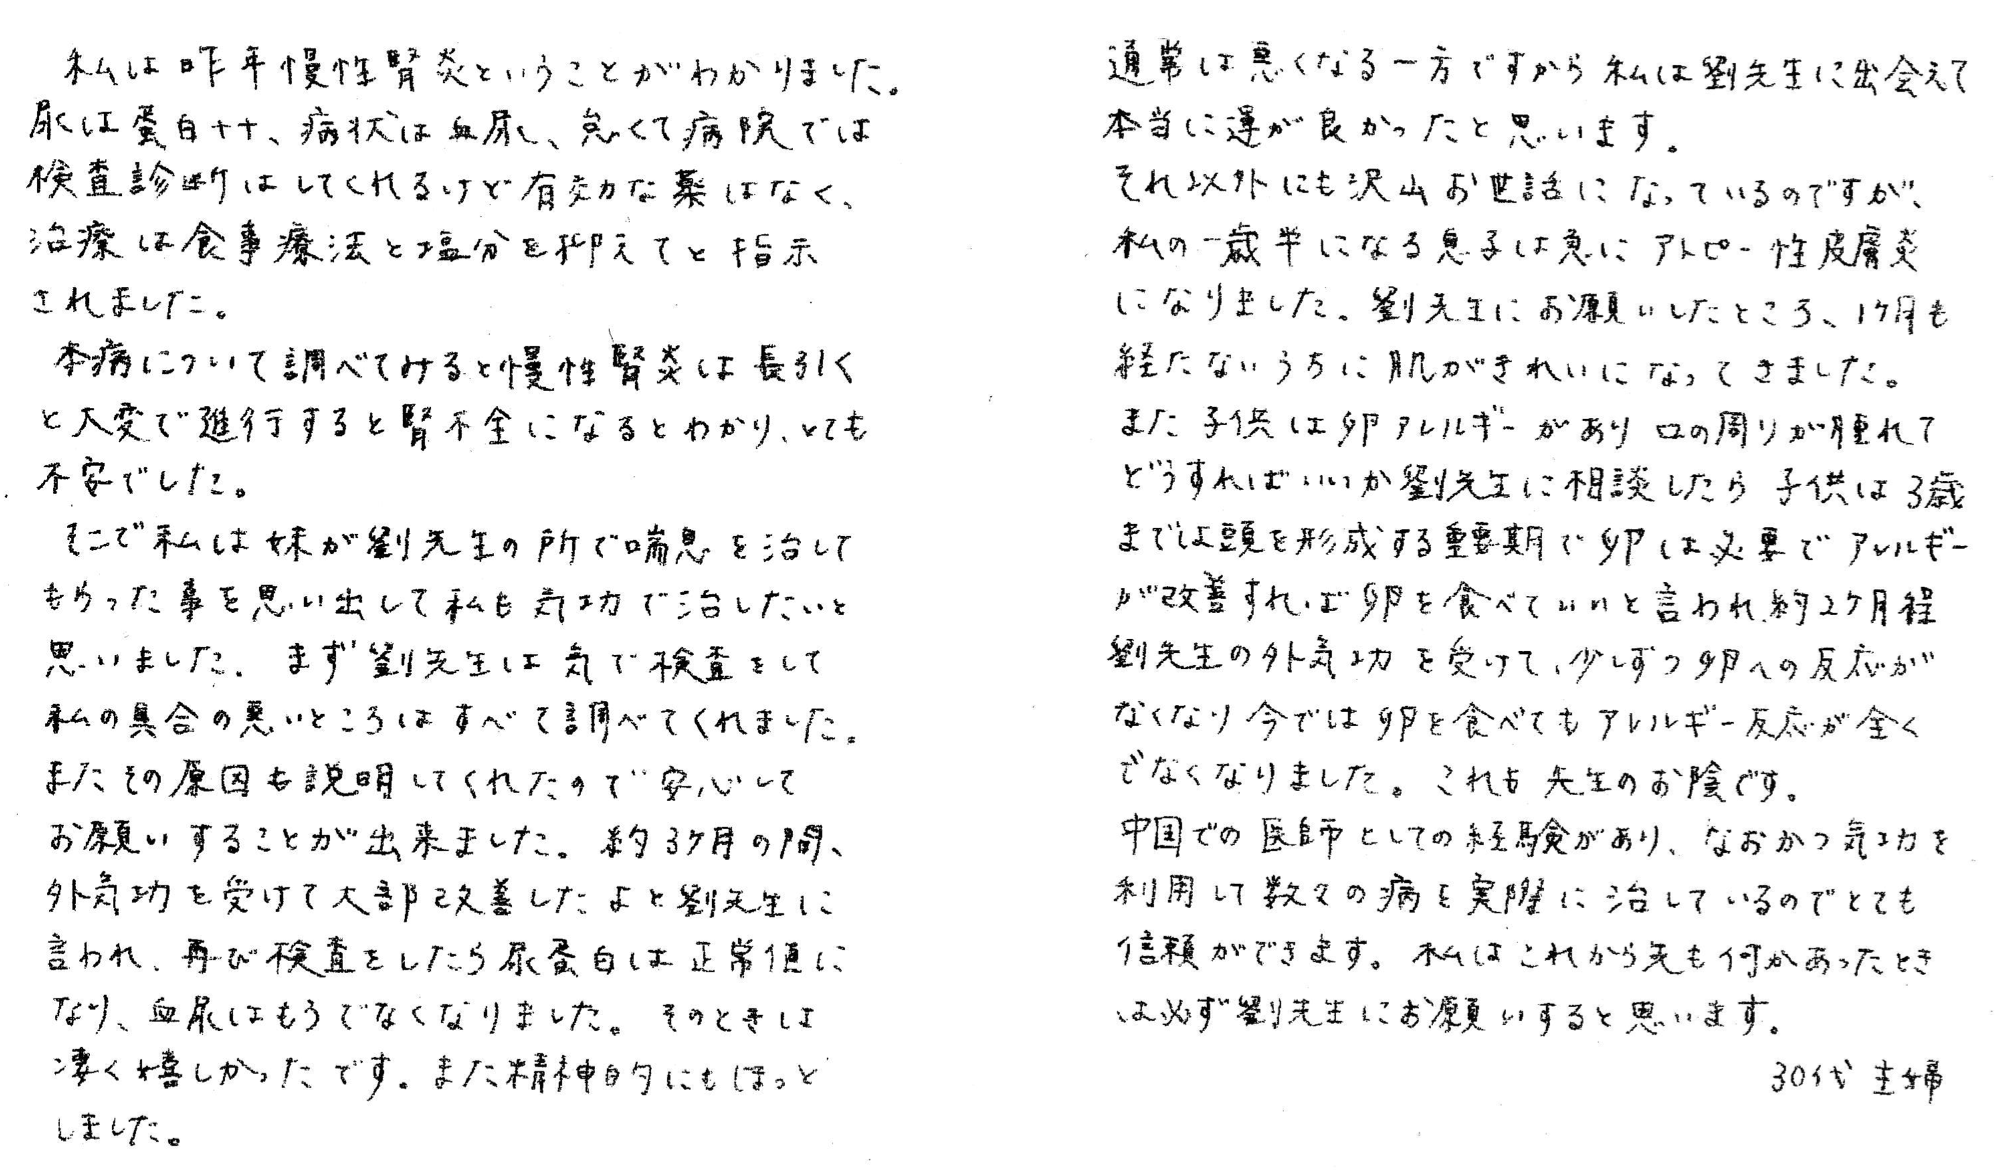 私は昨年慢性腎炎ということがわかりました。
尿は蛋白++、病状は血尿し、怠くて病院では
検査診断はしてくれるけど有効な薬はなく、
治療は食事療法と塩分を抑えてと指示
されました。
本病について調べてみると慢性腎炎は長引く
と大変で進行すると腎不全になるとわかり、とても
不安でした。
そこで私は妹が劉先生の所で喘息を治して
もらった事を思い出して私も気功で治したいと
思いました。まず劉先生は気で検査をして
私の具合の悪いところはすべて調べてくれました。
またその原因も説明してくれたので安心して
お願いすることが出来ました。約3ケ月の間、
外気功を受けて大部改善したよと劉先生に
言われ、再び検査をしたら尿蛋白は正常値に
なり、血尿はもうでなくなりました。そのときは
凄く嬉しかったです。また精神的にもほっと
しました。
通常は悪くなる一方ですから私は劉先生に出会えて
本当に運が良かったと思います。
それ以外にも沢山お世話になっているのですが、
私の一歳半になる息子は急にアトピー性皮膚炎
になりました。劉先生にお願いしたところ、1ケ月も
経たないうちに肌がきれいになってきました。
また子供は卵アレルギーがあり口の周りが腫れて
どうすればいいか劉先生に相談したら子供は3歳
までは頭を形成する重要期で卵は必要でアレルギー
が改善すれば卵を食べていいと言われ約2ケ月程
劉先生の外気功を受けて、少しずつ卵への反応が
なくなり今では卵を食べてもアレルギー反応が全く
でなくなりました。これも先生のお陰です。
中国での医師としての経験があり、なおかつ気功を
利用して数々の病を実際に治しているのでとても
信頼ができます。私はこれから先も何かあったとき
は必ず劉先生にお願いすると思います。
30代 主婦